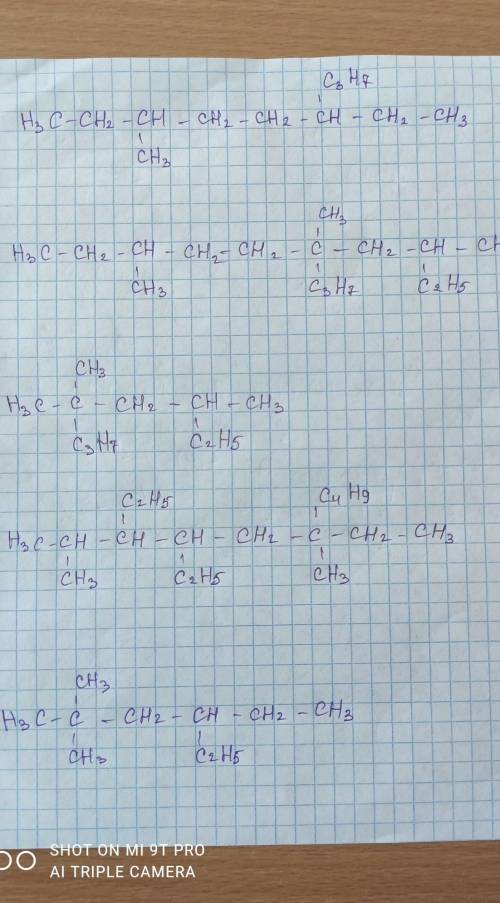 C3H7
H3C-CH2-CH-CH2-CH2-CH-CH2-CH3
CH3
CH3
H3C-CH2-CH-CH2-CH2-C-CH2-CH-CH
CH3 C3H7 C2H5
CH3
H3C-C-CH2-CH-CH3
C3H7 C2H5
C2H5 C4H9
H3C-CH-CH-CH-CH2-C-CH2-CH3
CH3 C2H5 CH3
CH3
H3C-C-CH2-CH-CH2-CH3
CH3 C2H5
SHOT ON MI 9T PRO
AI TRIPLE CAMERA